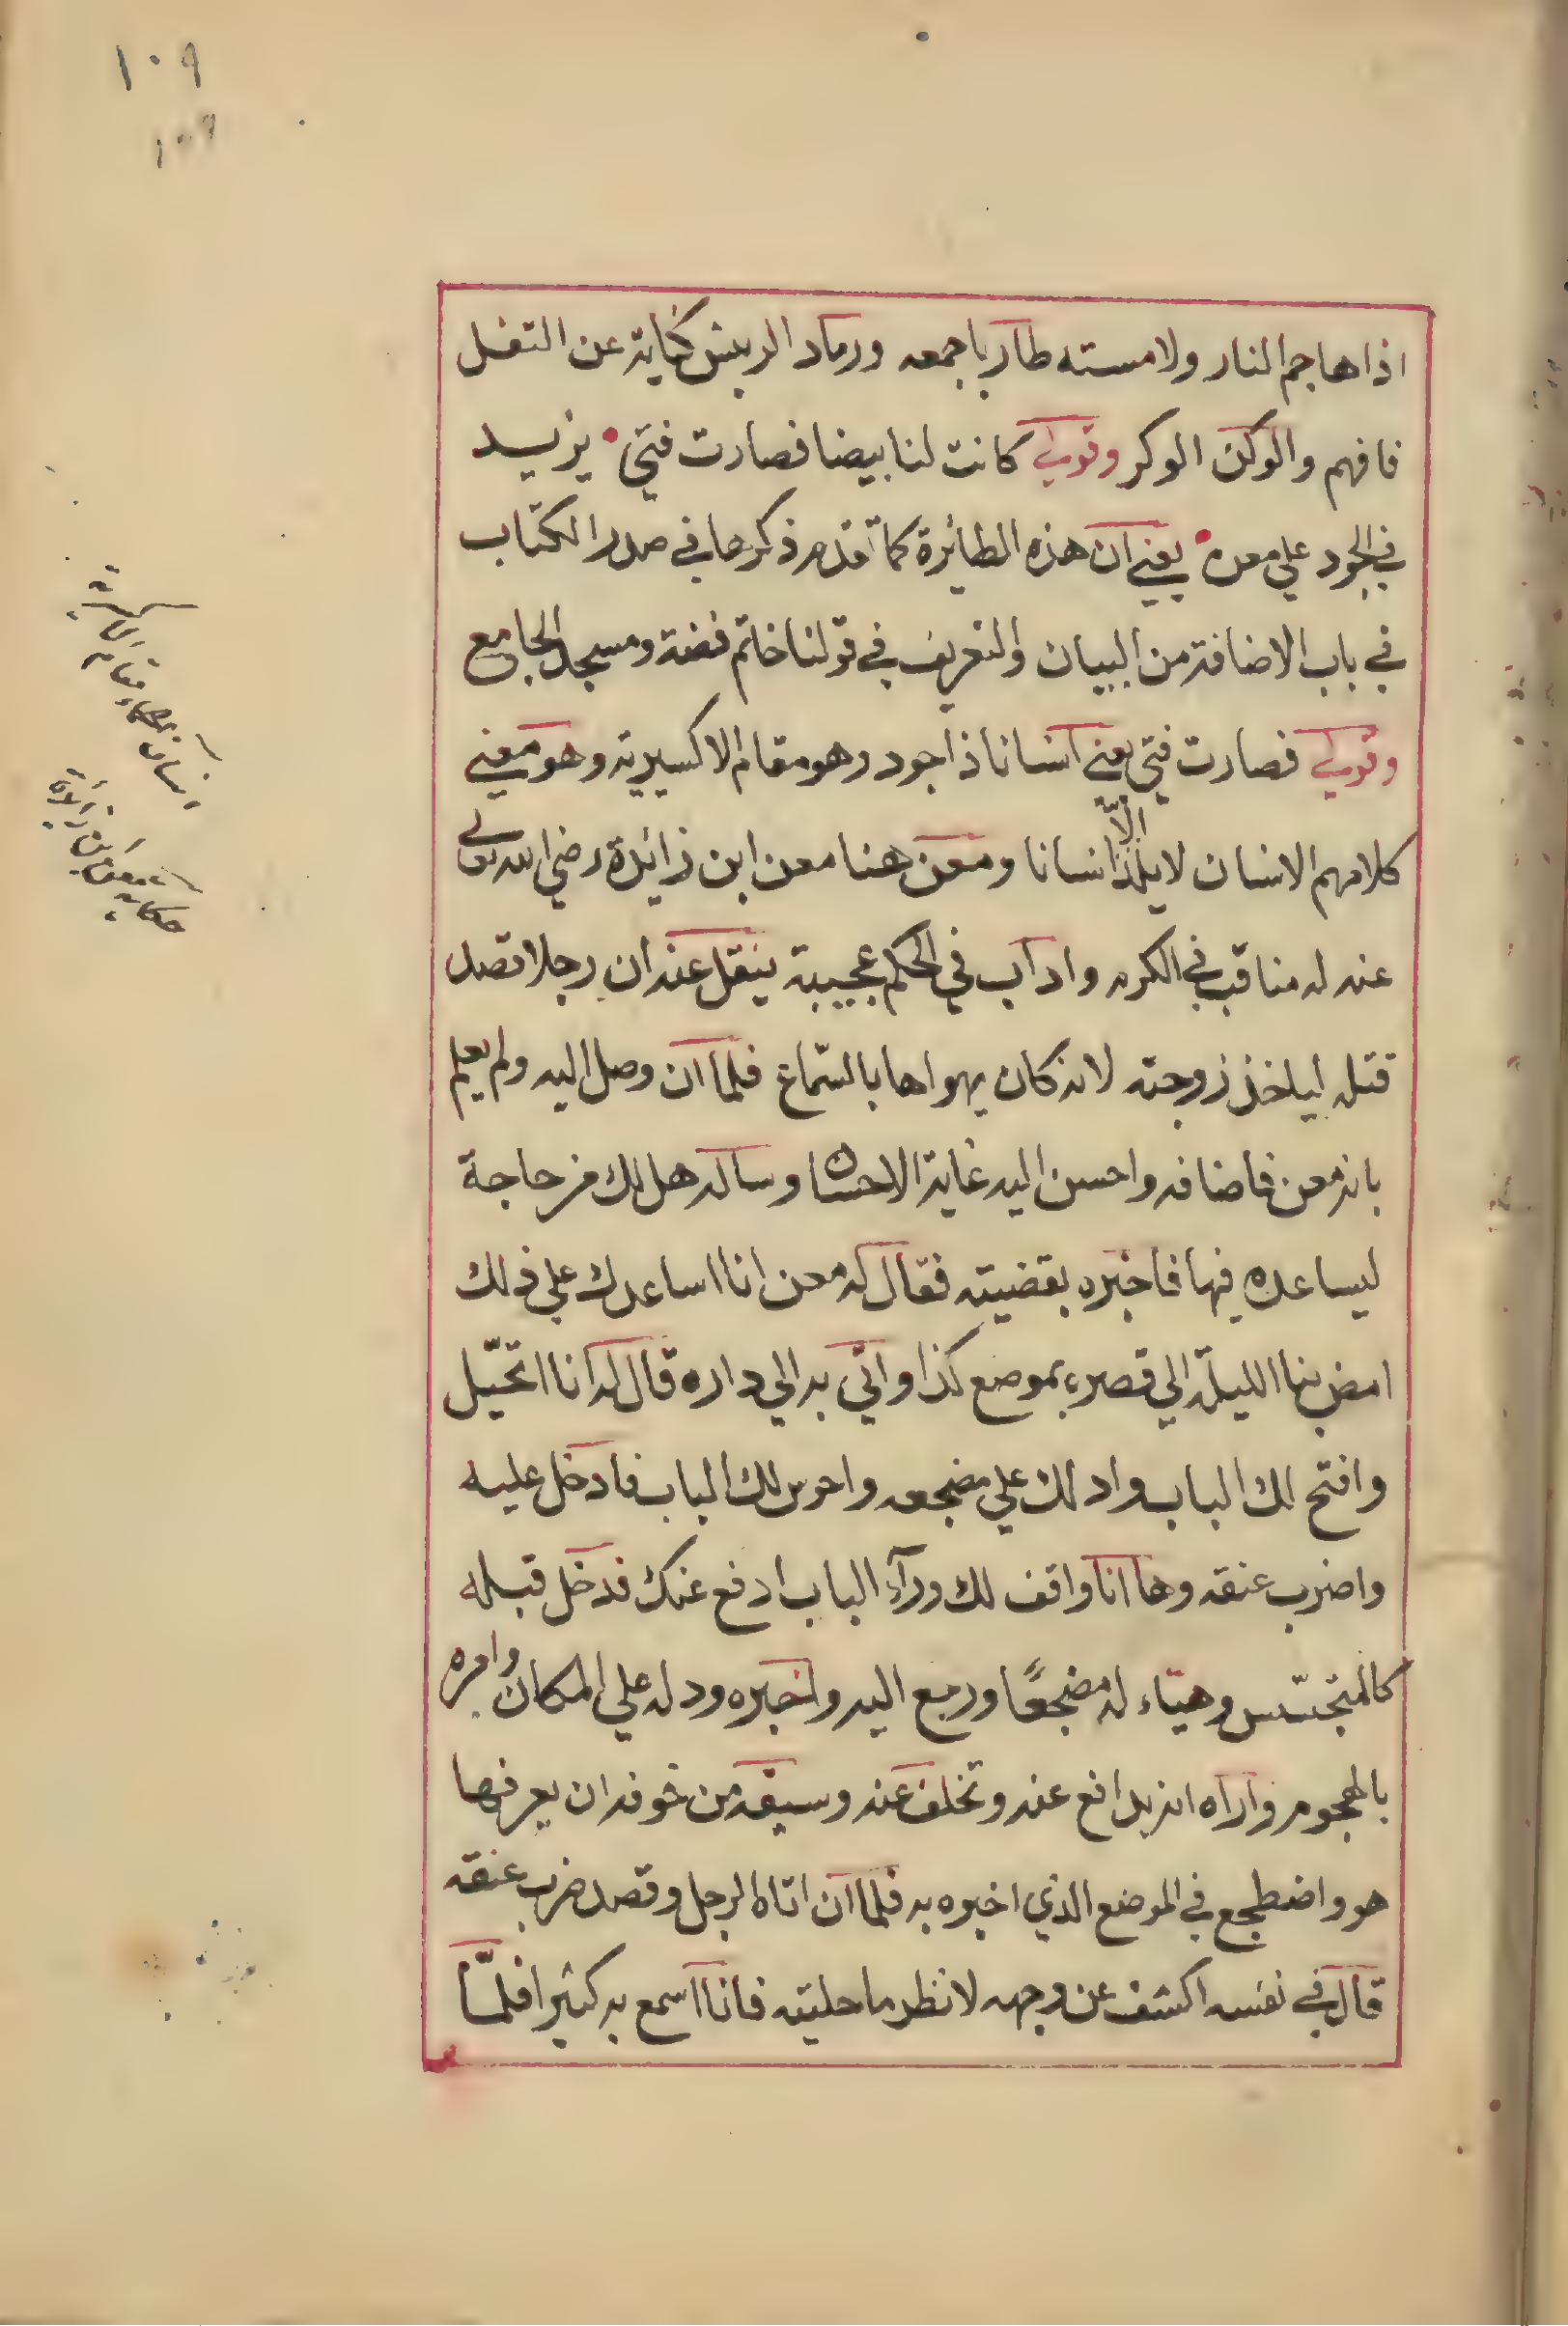 ١٠٩
١٠٩
اذا هاجم النار ولامسته طار باجمعه ورماد الريش كناية عن التفل
فافهم والوكن الوكر وقولي كانت لنا بيضا فصارت فتى • يزيد
في الجود علي معن • يعني ان هذه الطائرة كما تقدم ذكرها في صدر الكتاب
في باب الاضافة من البيان والتعريف في قولنا خاتم فضة ومسجد الجامع
وقولي فصارت فتي يعني انسانا ذا جود وهو مقام الاكسيرية وهو معني
كلامهم الانسان لا يلد الّا انسانا ومعن هنا معن ابن زائدة رضي الله تعالى
عنه له مناقب في الكرم واداب في الحكم عجيبة ينقل عنه ان رجلا قصد
قتله لياخذ زوجته لانه كان يهواها بالسّماع فلما ان وصل اليه ولم يعلم
بانه معن فاضافه واحسن اليه غاية الاحسان وساله هل لك من حاجة
ليساعده فيها فاخبره بقضيته فقال له معن انا اساعدك علي ذلك
امض بنا الليلة الي قصره بموضع كذا واتي به الي داره قال له انا اتحيّل
وافتح لك الباب وادلك علي مضجعه واحرس لك الباب فادخل عليه
واضرب عنقه وها انا واقف لك ورآء الباب ادفع عنك فدخل قبله
كالمتجسّس وهيّاء له مضجعًا ورجع اليه واخبره ودله علي المكان وامره
بالهجوم واراه انه يدافع عنه وتخلف عنه وسيفه من خوفه ان يعرفها
هو واضطجع في الموضع الذي اخبره به فلما ان اتاه الرجل وقصد ضرب عنقه
قال في نفسه اكشف عن وجهه لانظر ما حليته فانا اسمع به كثيرا فلمّا
حكاية معن بن زائدة